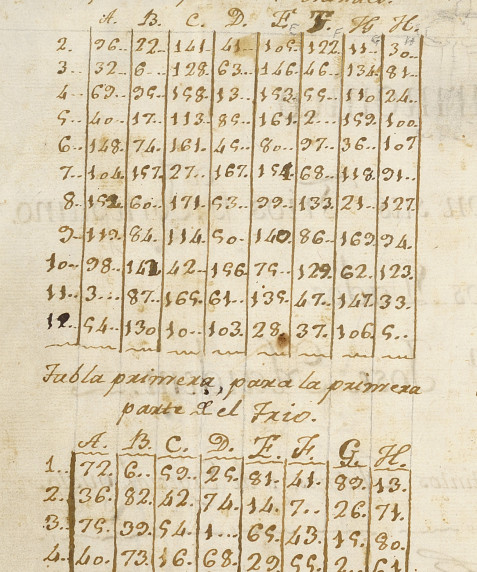 A. B. C. D. E. F. H. H.
2. 96. 22. 141. 41. 105. 122. 11. 30.
3. 32. 6. 128. 63. 146. 46. 134. 81.
4. 69. 95. 158. 13. 153. 55. 110. 24.
5. 40. 17. 113. 85. 161. 2. 159. 100.
6. 148. 74. 161. 45. 80. 97. 36. 107
7. 104. 157. 27. 167. 154. 68. 118. 91.
8. 152. 60. 171. 53. 99. 133. 21. 127
9. 119. 84. 114. 50. 140. 86. 169. 94.
10. 98. 142. 42. 156. 75. 129. 62. 123.
11. 3. 87. 165. 61. 135. 47. 147. 33.
12. 54. 130. 10. 103. 28. 37. 106. 5.
Tabla primera, para la primera
parte del Trio.
A. B. C. D. E. F. G. H.
1. 72. 6. 59. 25. 81. 41. 89. 13.
2. 36. 82. 42. 74. 14. 7. 26. 71.
3. 75. 39. 54. 1. 65. 43. 15. 80.
4. 40. 73. 16. 68. 29. 55. 2. 61.